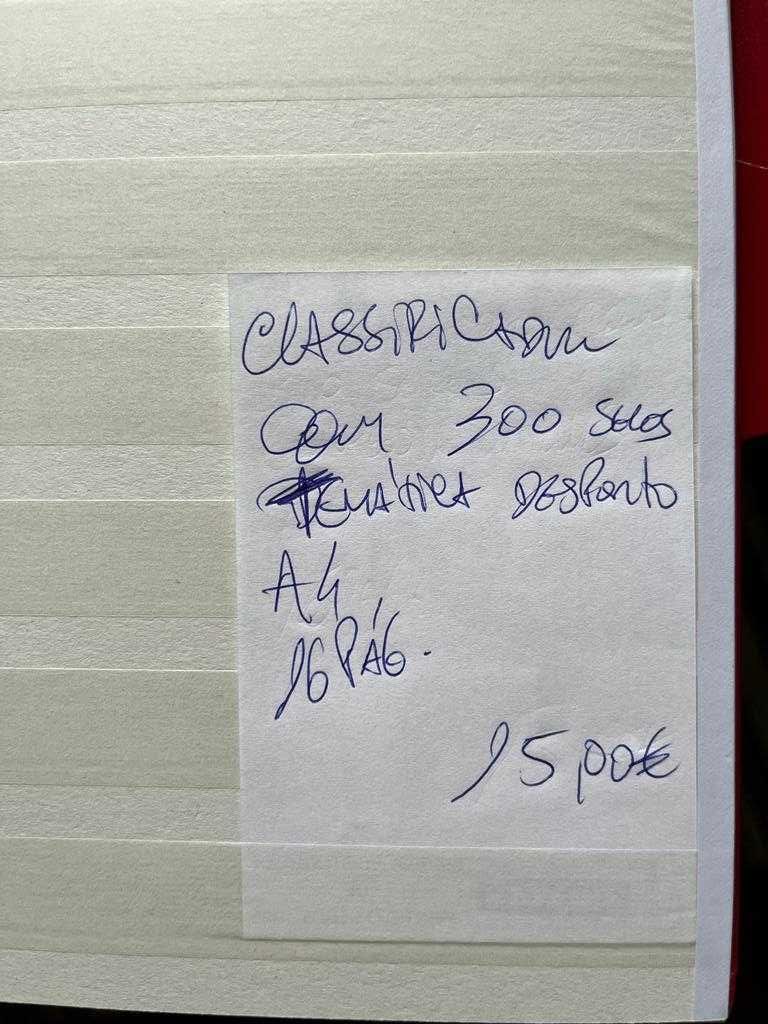 CLASSIFICADOR
COM 300 SELOS
TEMÁTICA DESPORTO
A4
16 PÁG.
15,00€